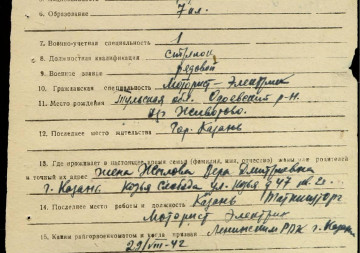 6. Образование 7 кл.
7. Военно-учетная специальность 1
8. Должностная квалификация стрелок
9. Военное звание рядовой
10. Гражданская специальность Моторист-Электрик
11. Место рождения Тульская обл. Одоевский р-н.
12. Последнее место жительства Гор. Казань
13. Где проживает в настоящее время семья (фамилия, имя, отчество) жены или родителей
и точный их адрес жена Жилова Вера Дмитриевна
г. Казань Козья Слобода ул.
14. Последнее место работы и должность Казань
Моторист Электрик
15. Каким райвоенкоматом и когда призван Ленинским РВК г. Казань
29/VIII-42